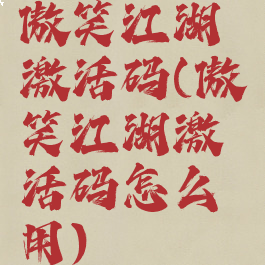 傲笑江湖
激活码(傲
笑江湖激
活码怎么
用)